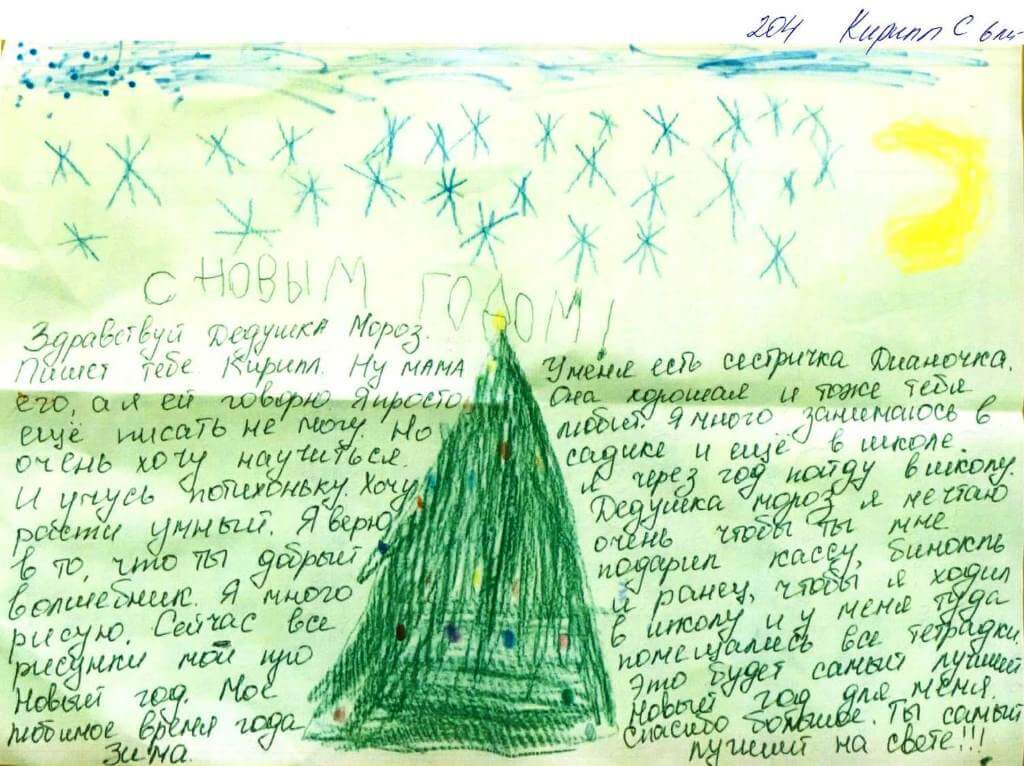 204 Кирилл С 6 л
С НОВЫМ ГОДОМ!
Здравствуй Дедушка Мороз.
Пишет тебе Кирилл. Ну мама
его, а я ей говорю. Я просто
ещё писать не могу. Но
очень хочу научиться.
И учусь потихоньку. Хочу
расти умный. Я верю
в то, что ты добрый
волшебник. Я много
рисую. Сейчас все
рисунки мои про
Новый год. Мое
любимое время года
Зима.
У меня есть сестричка Дианочка.
Она хорошая и тоже тебя
любит. Я много занимаюсь в
садике и ещё в школе.
Я через год пойду в школу.
Дедушка мороз я мечтаю
очень чтобы ты мне
подарил кассу, бинокль
и ранец, чтобы я ходил
в школу и у меня туда
помещались все тетрадки.
Это будет самый лучший
Новый год для меня.
Спасибо большое. Ты самый
лучший на свете!!!